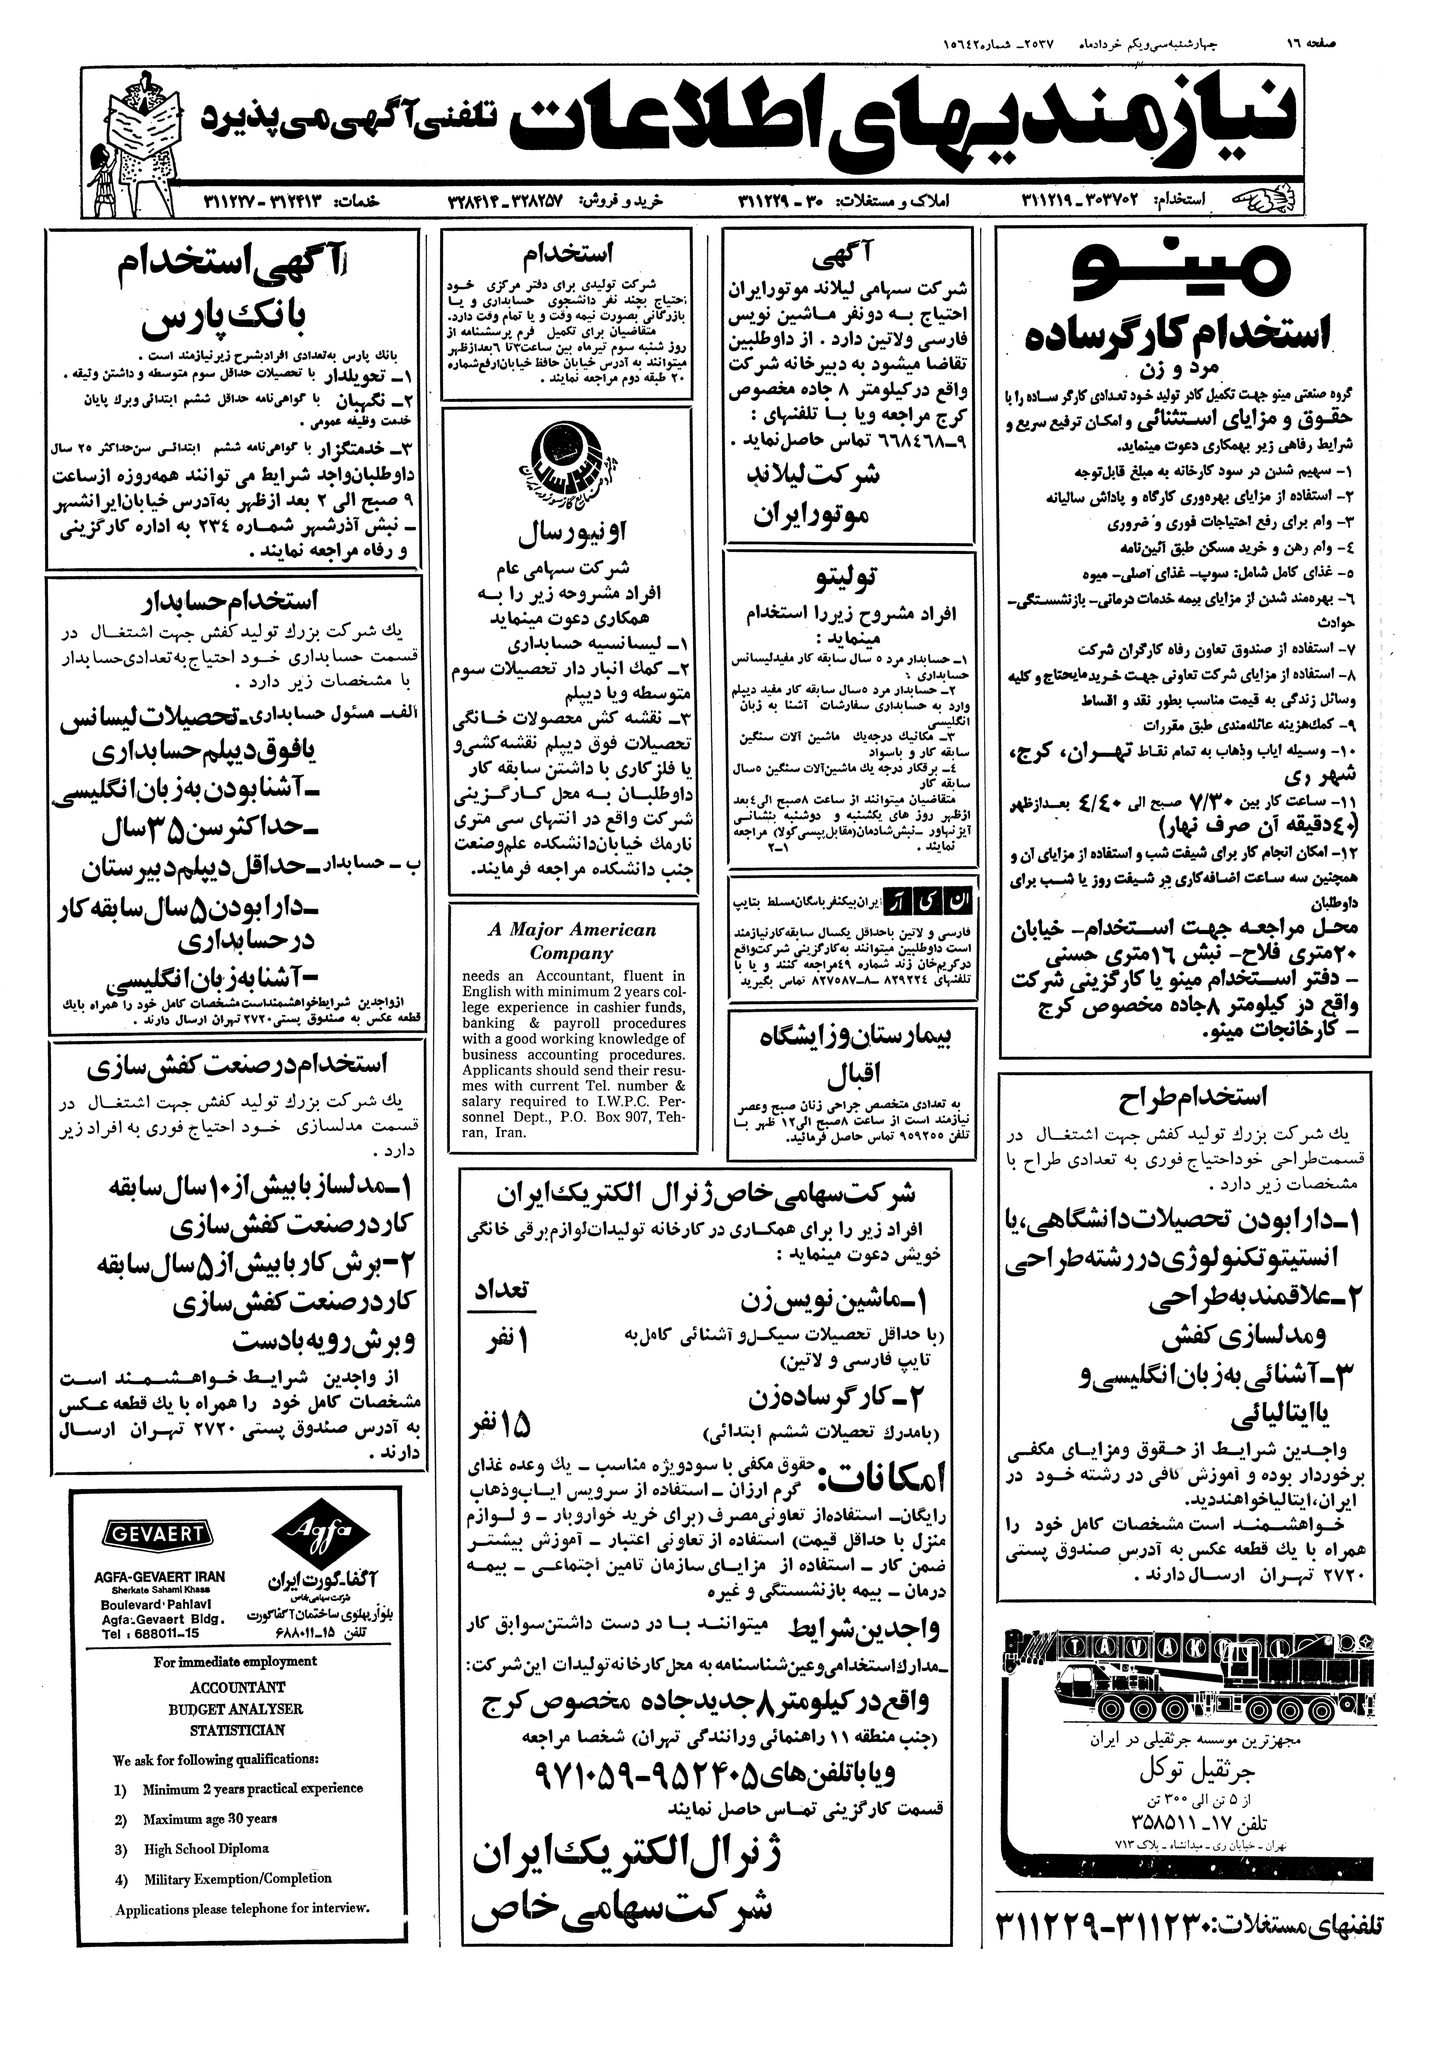 صفحه ۱۶
چهارشنبه سی و یکم خرداد ماه
۲۵۳۷ـ شماره ۱۵۶۴۲
نیازمندیهای اطلاعات تلفنی آگهی می پذیرد
استخدام: ۳۰۳۷۰۲ـ ۳۱۱۲۱۹
املاک و مستغلات: ۳۰ - ۳۱۱۲۲۹
خرید و فروش: ۳۲۸۲۵۷ـ ۳۲۸۴۱۴
خدمات: ۳۱۲۴۱۳ - ۳۱۱۲۲۷
مینو
استخدام کارگر ساده
مرد و زن
گروه صنعتی مینو جهت تکمیل کادر تولید خود تعدادی کارگر ساده را با
حقوق و مزایای استثنائی و امکان ترفیع سریع و
شرایط رفاهی زیر بهمکاری دعوت مینماید.
۱- سهیم شدن در سود کارخانه به مبلغ قابل توجه
۲- استفاده از مزایای بهره‌وری کارگاه و پاداش سالیانه
۳- وام برای رفع احتیاجات فوری و ضروری
۴- وام رهن و خرید مسکن طبق آئین‌نامه
۵- غذای کامل شامل: سوپ- غذای اصلی- میوه
۶- بهره‌مند شدن از مزایای بیمه خدمات درمانی- بازنشستگی-
حوادث
۷- استفاده از صندوق تعاون رفاه کارگران شرکت
۸- استفاده از مزایای شرکت تعاونی جهت خرید مایحتاج و کلیه
وسائل زندگی به قیمت مناسب بطور نقد و اقساط
۹- کمک‌هزینه عائله‌مندی طبق مقررات
۱۰- وسیله ایاب وذهاب به تمام نقاط تهران، کرج،
شهر ری
۱۱- ساعت کار بین ۷/۳۰ صبح الی ۴/۴۰ بعدازظهر
(۴۰دقیقه آن صرف نهار)
۱۲- امکان انجام کار برای شیفت شب و استفاده از مزایای آن و
همچنین سه ساعت اضافه‌کاری در شیفت روز یا شب برای
داوطلبان
محل مراجعه جهت استخدام- خیابان
۲۰متری فلاح- نبش ۱۶متری حسنی
- دفتر استخدام مینو یا کارگزینی شرکت
واقع در کیلومتر ۸جاده مخصوص کرج
- کارخانجات مینو.
استخدام طراح
یک شرکت بزرگ تولید کفش جهت اشتغال در
قسمت‌طراحی خود احتیاج فوری به تعدادی طراح با
مشخصات زیر دارد .
۱ـ دارا بودن تحصیلات دانشگاهی، یا
انستیتو تکنولوژی در رشته طراحی
۲ـ علاقمند به طراحی
ومدلسازی کفش
۳ـ آشنائی به زبان انگلیسی و
یا ایتالیائی
واجدین شرایط از حقوق ومزایای مکفی
برخوردار بوده و آموزش کافی در رشته خود در
ایران، ایتالیا خواهند دید.
خواهشمند است مشخصات کامل خود را
همراه با یک قطعه عکس به آدرس صندوق پستی
۲۷۲۰ تهران ارسال دارند .
TAVAKOL
مجهزترین موسسه جرثقیلی در ایران
جرثقیل توکل
از ۵ تن الی ۳۰۰ تن
تلفن ۱۷ـ ۳۵۸۵۱۱
تهران - خیابان ری - میدانشاه - پلاک ۷۱۳
تلفنهای مستغلات: ۳۱۱۲۳۰ـ۳۱۱۲۲۹
آگهی
شرکت سهامی لیلاند موتورایران
احتیاج به دونفر ماشین نویس
فارسی ولاتین دارد . از داوطلبین
تقاضا میشود به دبیرخانه شرکت
واقع درکیلومتر ۸ جاده مخصوص
کرج مراجعه ویا با تلفنهای :
۹ـ۶۶۸۴۶۸ تماس حاصل نماید .
شرکت لیلاند
موتور ایران
تولیتو
افراد مشروح زیررا استخدام
مینماید :
۱ـ حسابدار مرد ۵ سال سابقه کار مفید لیسانس
حسابداری ؛
۲ـ حسابدار مرد ۵سال سابقه کار مفید دیپلم
وارد به حسابداری سفارشات آشنا به زبان
انگلیسی
۳ـ مکانیک درجه‌یک ماشین آلات سنگین
سابقه کار و باسواد
۴ـ برقکار درجه یک ماشین‌آلات سنگین ۵سال
سابقه کار
متقاضیان میتوانند از ساعت ۸صبح الی۴بعد
ازظهر روز های یکشنبه و دوشنبه بنشانی
آیزنهاور ـنبش‌شادمان(مقابل‌پپسی‌کولا) مراجعه
نمایند . ۱ـ۲
ان کی آر ایران بیکنفر بایگان مسلط بتایپ
فارسی و لاتین باحداقل یکسال سابقه‌کار نیازمند
است داوطلبین میتوانند به‌کارگزینی شرکت‌واقع
درکریم‌خان زند شماره ۴۹مراجعه کنند و یا با
تلفنهای ۸۲۹۲۲۴ ـ۸ـ۸۲۷۵۸۷ تماس بگیرید
بیمارستان و زایشگاه
اقبال
به تعدادی متخصص جراحی زنان صبح وعصر
نیازمند است از ساعت ۸صبح الی۱۲ ظهر با
تلفن ۹۵۹۲۵۵ تماس حاصل فرمائید.
استخدام
شرکت تولیدی برای دفتر مرکزی خود
احتیاج بچند نفر دانشجوی حسابداری و یا
بازرگانی بصورت نیمه وقت و یا تمام وقت دارد.
متقاضیان برای تکمیل فرم پرسشنامه از
روز شنبه سوم تیرماه بین ساعت۳تا ۶بعدازظهر
میتوانند به آدرس خیابان حافظ خیابان‌ارفع‌شماره
۲۰ طبقه دوم مراجعه نمایند .
اونیورسال
شرکت سهامی عام
افراد مشروحه زیر را به
همکاری دعوت مینماید
۱ـ لیسانسیه حسابداری
۲ـ کمک انبار دار تحصیلات سوم
متوسطه ویا دیپلم
۳ـ نقشه کش محصولات خانگی
تحصیلات فوق دیپلم نقشه‌کشی‌و
یا فلزکاری با داشتن سابقه کار
داوطلبان به محل کارگزینی
شرکت واقع در انتهای سی متری
نارمک خیابان‌دانشکده علم‌وصنعت
جنب دانشکده مراجعه فرمایند.
A Major American
Company
needs an Accountant, fluent in
English with minimum 2 years col-
lege experience in cashier funds,
banking & payroll procedures
with a good working knowledge of
business accounting procedures.
Applicants should send their resu-
mes with current Tel. number &
salary required to I.W.P.C. Per-
sonnel Dept., P.O. Box 907, Teh-
ran, Iran.
شرکت سهامی خاص ژنرال الکتریک ایران
افراد زیر را برای همکاری در کارخانه تولیدات‌لوازم‌برقی خانگی
خویش دعوت مینماید :
۱ـ ماشین نویس زن
تعداد
(با حداقل تحصیلات سیکل‌و آشنائی کامل‌به
۱ نفر
تایپ فارسی و لاتین)
۲ـ کارگر ساده زن
(بامدرک تحصیلات ششم ابتدائی)
۱۵ نفر
امکانات: حقوق مکفی با سودویژه مناسب ـ یک وعده غذای
گرم ارزان ـ استفاده از سرویس ایاب‌وذهاب
رایگان- استفاده‌از تعاونی‌مصرف (برای خرید خواروبار - و لوازم
منزل با حداقل قیمت) استفاده از تعاونی اعتبار - آموزش بیشتر
ضمن کار ـ استفاده از مزایای سازمان تامین اجتماعی ـ بیمه
درمان - بیمه بازنشستگی و غیره
واجدین شرایط میتوانند با در دست داشتن‌سوابق کار
ـمدارک‌استخدامی‌وعین‌شناسنامه به محل‌کارخانه‌تولیدات این‌شرکت:
واقع در کیلومتر ۸ جدید جاده مخصوص کرج
(جنب منطقه ۱۱ راهنمائی ورانندگی تهران) شخصا مراجعه
و یا با تلفن های ۹۵۲۴۰۵-۹۷۱۰۵۹
قسمت کارگزینی تماس حاصل نمایند
ژنرال الکتریک ایران
شرکت سهامی خاص
آگهی استخدام
بانک پارس
بانک پارس به‌تعدادی افرادبشرح زیرنیازمند است .
۱ـ تحویلدار با تحصیلات حداقل سوم متوسطه و داشتن وثیقه .
۲ـ نگهبان با گواهی‌نامه حداقل ششم ابتدائی وبرگ پایان
خدمت وظیفه عمومی .
۳ـ خدمتگزار با گواهی‌نامه ششم ابتدائی سن‌حداکثر ۲۵ سال
داوطلبان‌واجد شرایط می توانند همه‌روزه ازساعت
۹ صبح الی ۲ بعد ازظهر به‌آدرس خیابان‌ایرانشهر
ـ نبش آذرشهر شماره ۲۳۴ به اداره کارگزینی
و رفاه مراجعه نمایند .
استخدام حسابدار
یک شرکت بزرگ تولید کفش جهت اشتغال در
قسمت حسابداری خود احتیاج به‌تعدادی‌حسابدار
با مشخصات زیر دارد .
الف‌ـ مسئول حسابداری‌ـ تحصیلات لیسانس
یا فوق دیپلم حسابداری
ـ آشنا بودن به زبان انگلیسی
ـ حداکثر سن ۳۵ سال
ب ـ حسابدار ـ حداقل دیپلم دبیرستان
ـ دارا بودن ۵ سال سابقه کار
در حسابداری
- آشنا به زبان انگلیسی
ازواجدین شرایط‌خواهشمنداست‌مشخصات کامل خود را همراه بایک
قطعه عکس به صندوق پستی ۲۷۲۰ تهران ارسال دارند .
استخدام در صنعت کفش سازی
یک شرکت بزرگ تولید کفش جهت اشتغال در
قسمت مدلسازی خود احتیاج فوری به افراد زیر
دارد .
۱ـ مدلساز با بیش از ۱۰ سال سابقه
کار در صنعت کفش سازی
۲- برش کار با بیش از ۵ سال سابقه
کار در صنعت کفش سازی
و برش رویه با دست
از واجدین شرایط خواهشمند است
مشخصات کامل خود را همراه با یک قطعه عکس
به آدرس صندوق پستی ۲۷۲۰ تهران ارسال
دارند .
GEVAERT
Agfa
AGFA-GEVAERT IRAN
Sherkate Sahami Khass
Boulevard Pahlavi
Agfa-Gevaert Bldg.
Tel : 688011-15
آگفا-گورت ایران
شرکت سهامی خاص
بلوار پهلوی ساختمان آگفاگورت
تلفن ۱۵-۶۸۸۰۱۱
For immediate employment
ACCOUNTANT
BUDGET ANALYSER
STATISTICIAN
We ask for following qualifications:
1) Minimum 2 years practical experience
2) Maximum age 30 years
3) High School Diploma
4) Military Exemption/Completion
Applications please telephone for interview.